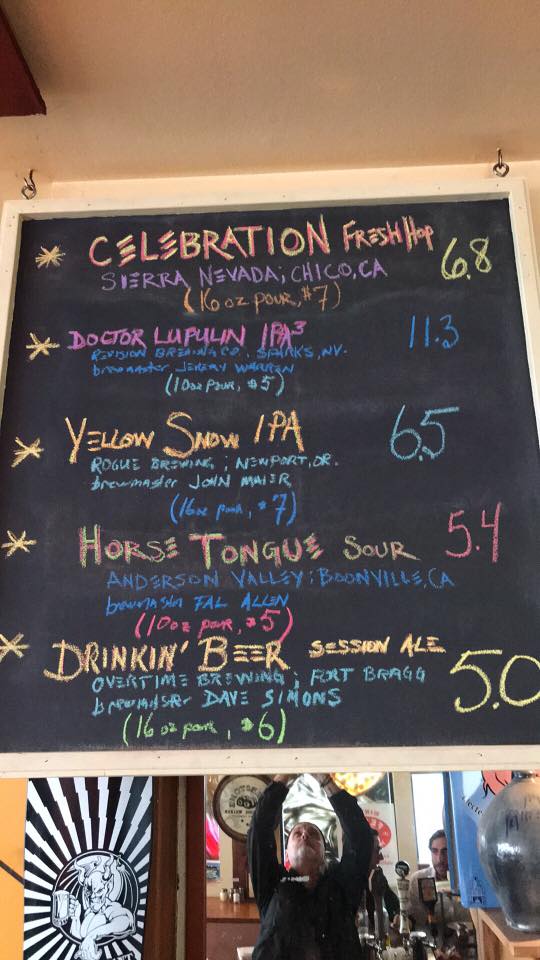 * CELEBRATION FRESH HOP 6.8
SIERRA NEVADA; CHICO, CA
(16 oz POUR, $7)
* DOCTOR LUPULIN IPA³ 11.3
REVISION BREWING CO. SPARKS, NV.
brewmaster JEREMY WARREN
(10oz POUR, $5)
* YELLOW SNOW IPA 6.5
ROGUE BREWING; NEWPORT, OR.
brewmaster JOHN MAIER
(16oz pour, $7)
* HORSE TONGUE SOUR 5.4
ANDERSON VALLEY; BOONVILLE, CA
brewmaster FAL ALLEN
(10oz pour, $5)
* DRINKIN' BEER SESSION ALE 5.0
OVERTIME BREWING; FORT BRAGG
brewmaster DAVE SIMONS
(16 oz pour, $6)